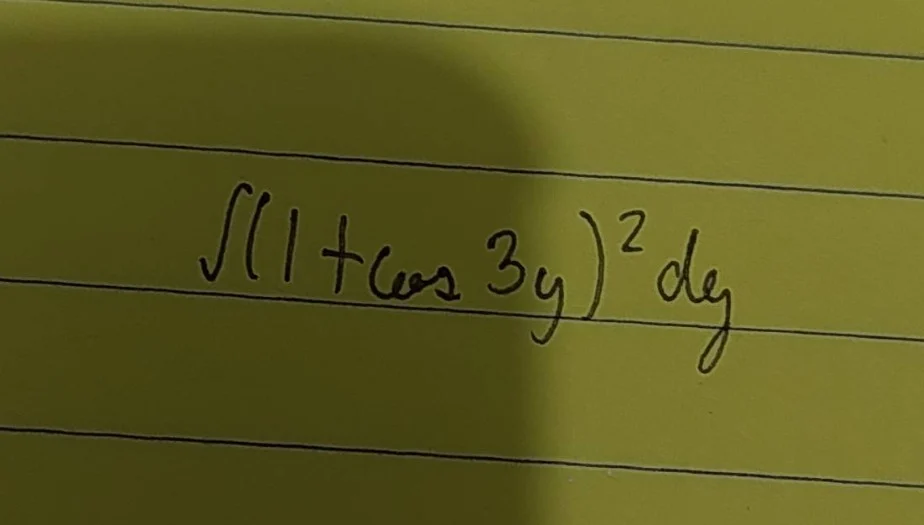 ∫(1+cos 3y)² dy